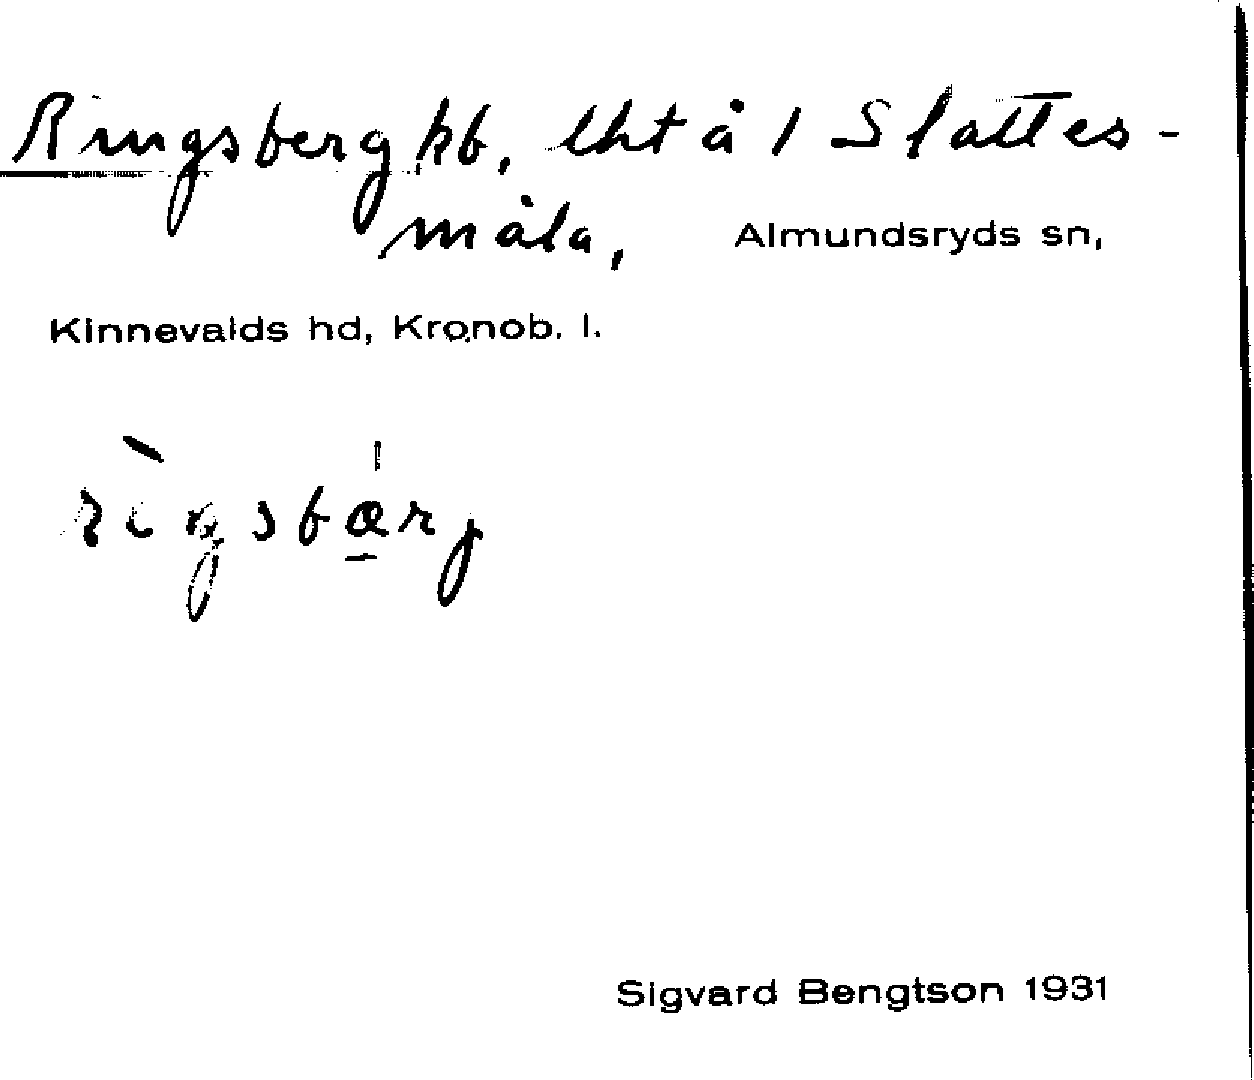 Ringsberg hb, lht å 1 Slättes-
måla, Almundsryds sn,
Kinnevalds hd, Kronob. l.
Sigvard Bengtson 1931